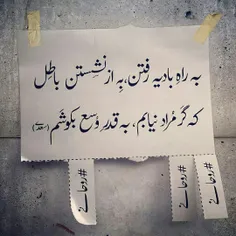 به راه بادیه رفتن، بِه از نشِستن باطل
که گر مُراد نیابم، به قدرِ وُسع بکوشَم (سعدی)
#روحانی
#روحانی
#روحانی